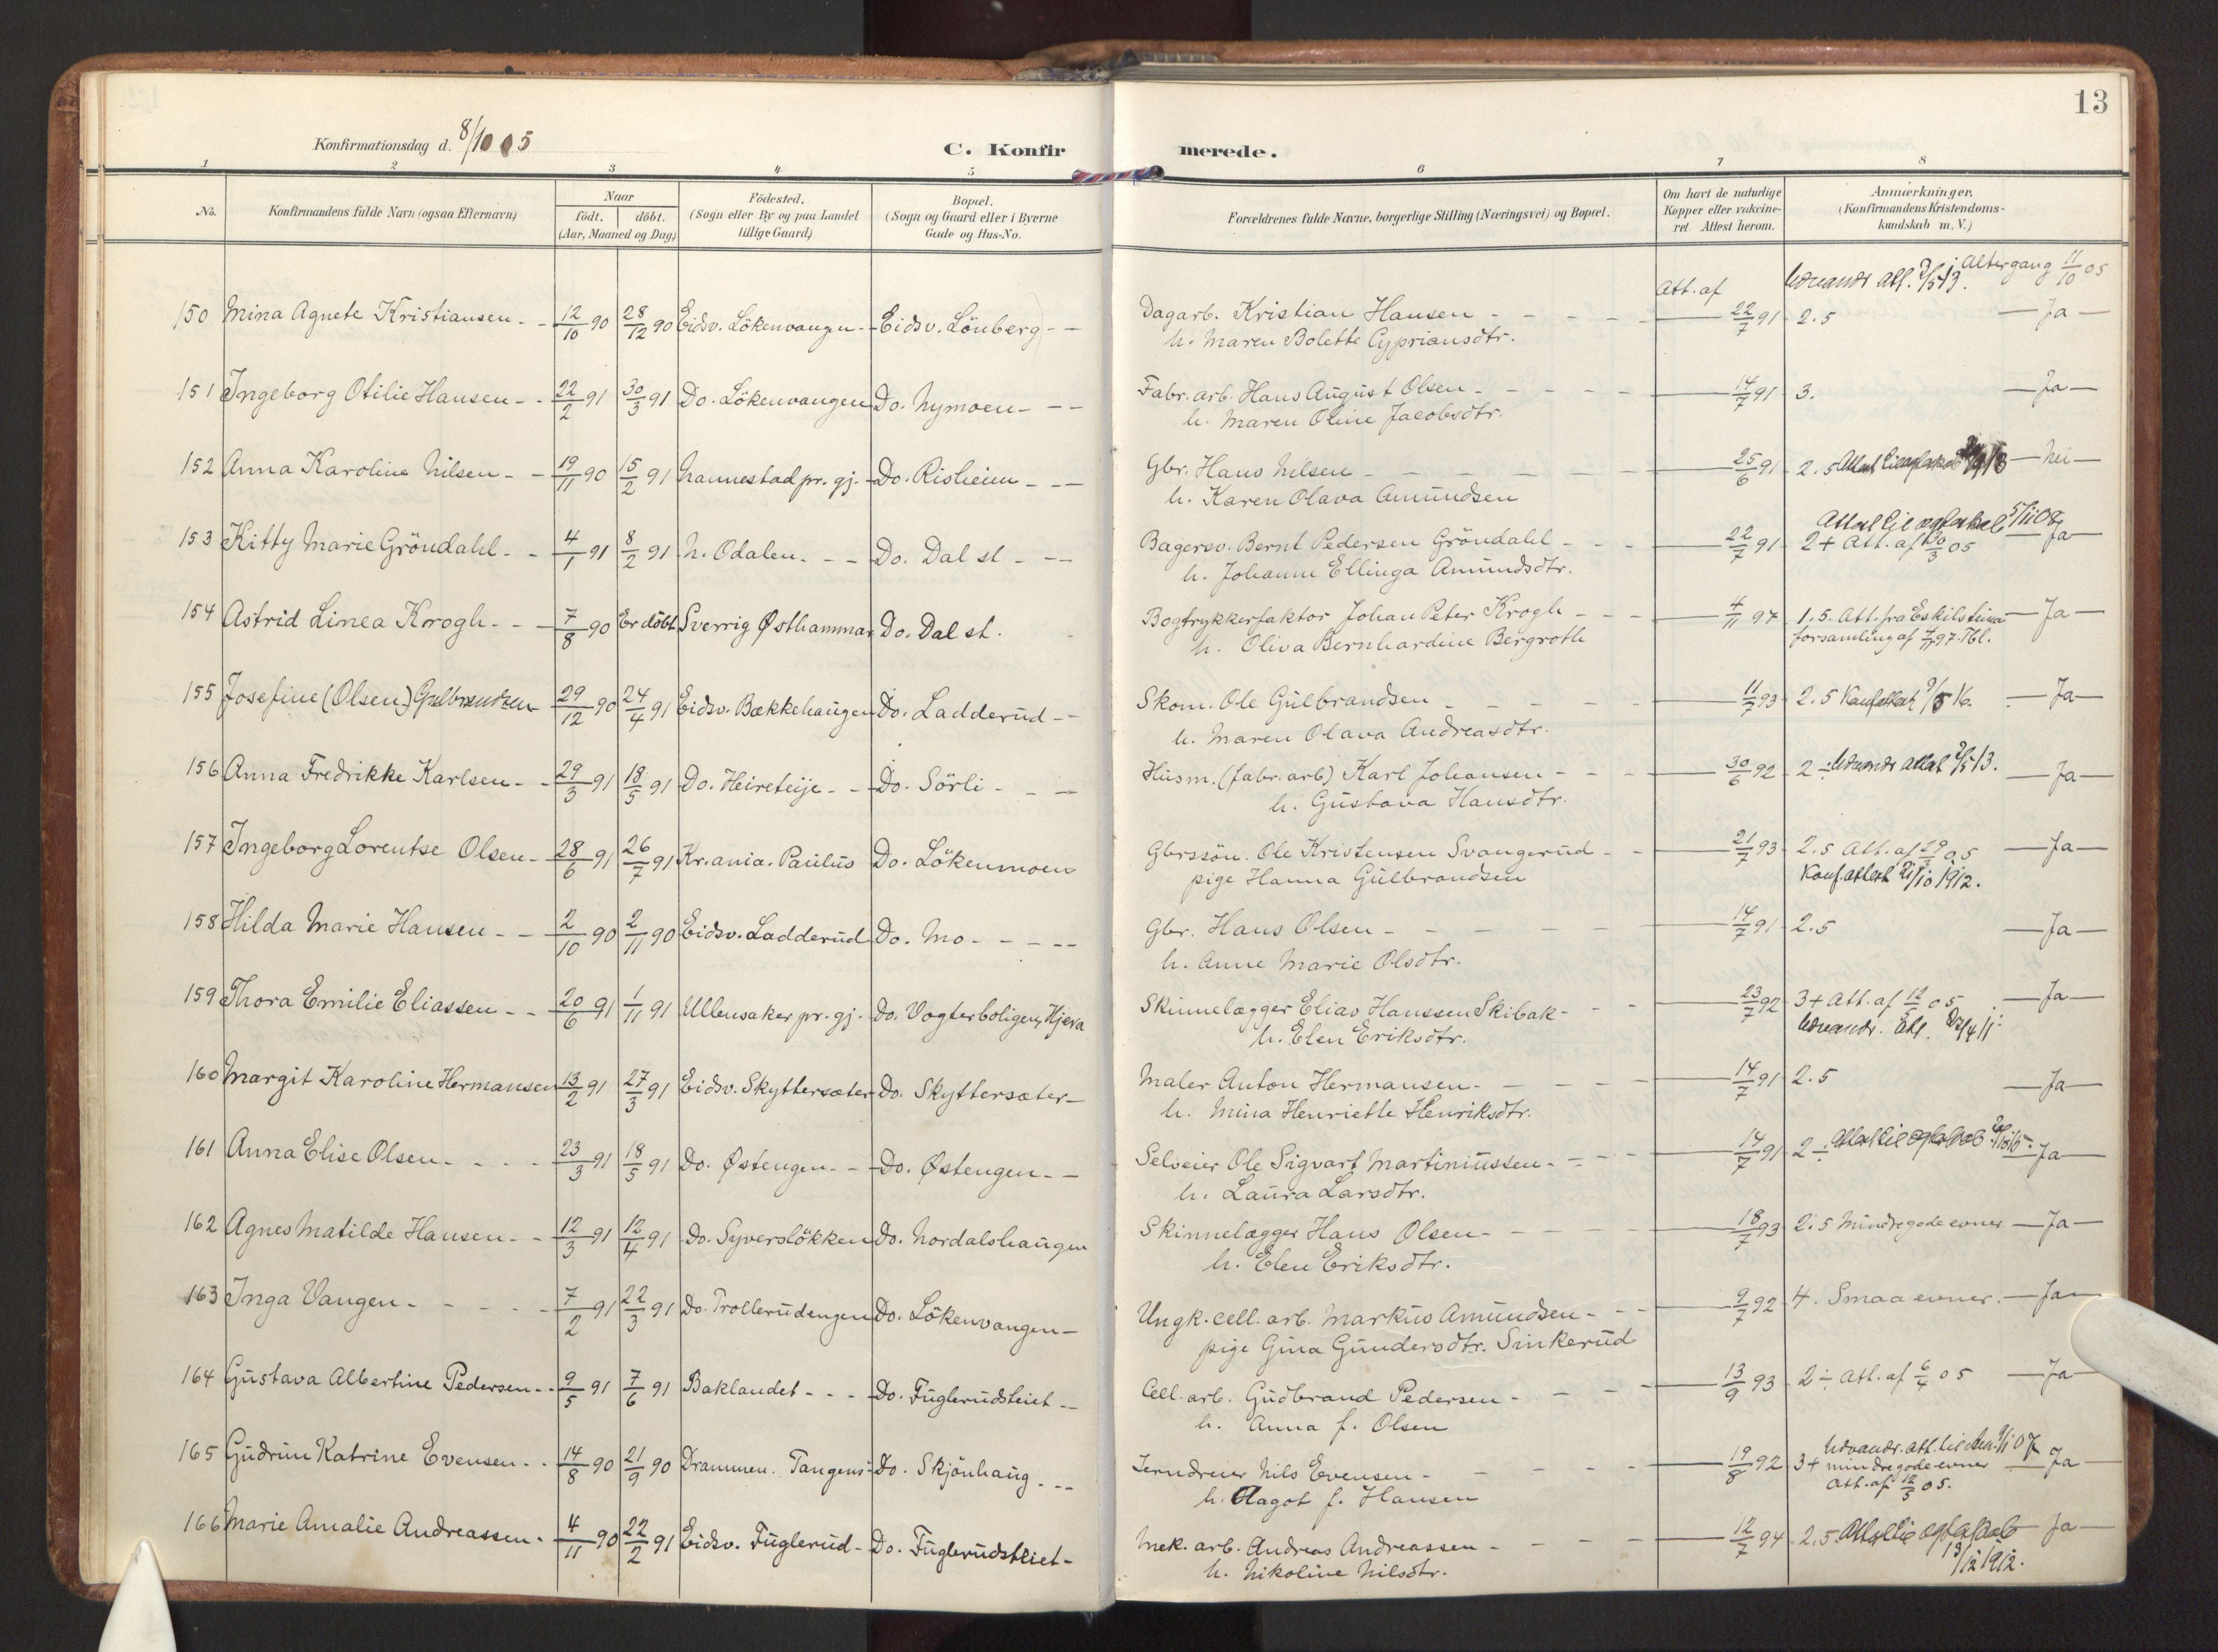 13
Konfirmationsdag d. 8/10 05
C. Konfirmerede.
1 2 3 4 5 6 7 8
No. Konfirmandens fulde Navn (ogsaa Efternavn) Naar födt. döbt. (Aar, Maaned og Dag) Födested. (Sogn eller By og paa Landet tillige Gaard) Bopæl. (Sogn og Gaard eller i Byerne Gade og Hus-No. Forældrenes fulde Navne, borgerlige Stilling (Næringsvei) og Bopæl. Om havt de naturlige Kopper eller vakcineret. Attest herom. Anmærkninger. (Konfirmandens Kristendomskundskab m. V.)
Att. af Udvandr att. 2/5 13. Altergang 11/10 05
150 Mina Agnete Kristiansen - - 12/10 90 28/12 90 Eidsv. Lökenvangen - Eidsv. Lönberg - - Dagarb. Kristian Hansen - 22/7 91 2.5 - Ja -
h. Maren Bolette Cypriansdtr.
151 Ingeborg Otilie Hansen - - 22/2 91 30/3 91 Do. Lökenvangen Do. Nymoen - - - Fabr. arb. Hans August Olsen - 14/7 91 3. - Ja -
h. Maren Oline Jacobsdtr.
152 Anna Karoline Nilsen - - 19/11 90 15/2 91 Nannestad pr. gj. - Do. Risheim - - - Gbr. Hans Nilsen - 25/6 91 2.5 Attest til ægteskab - Nei -
h. Karen Olava Amundsen
Attest til ægteskab 5/11 07
153 Kitty Marie Gröndahl - - 4/1 91 8/2 91 N. Odalen - - - Do. Dal st - - - Bagersv. Bernt Pedersen Gröndahl - 22/7 91 2+ Att. af 30/3 05 - Ja -
h. Johanne Ellinga Amundsdtr.
154 Astrid Linea Krogh - - - 7/8 90 Er döbt Sverrig Østhammar Do. Dal st. Bogtrykkerfaktor Johan Peter Krogh - 4/11 97 1.5. Att. fra Eskilstuna - Ja -
h. Oliva Bernhardine Bergroth forsamling af 4/11 97.
155 Josefine (Olsen) Gulbrandsen 29/12 90 24/4 91 Eidsv. Bækkehaugen Do. Ladderud - - Skom. Ole Gulbrandsen - 11/7 93 2.5 Konf.attest 9/5 16. - Ja -
h. Maren Olava Andreasdtr.
156 Anna Fredrikke Karlsen - - 29/3 91 18/5 91 Do. Heireteije - - Do. Sörli - - - Husm. (fabr. arb) Karl Johansen - 30/6 92 2 ÷ Udvandr attest 2/5 13. - Ja -
h. Gustava Hansdtr.
157 Ingeborg Lorentse Olsen - 28/6 91 26/7 91 Kr.ania. Paulus Do. Lökenmoen Gbrssön. Ole Kristensen Svangerud - 21/7 93 2.5 Att. af 29/3 05 - Ja -
pige Hanna Gulbrandsen Konf.attest 21/10 1912.
158 Hilda Marie Hansen - - 2/10 90 2/11 90 Eidsv. Ladderud Do. Mo - - - - Gbr. Hans Olsen - 14/7 91 2.5 - Ja -
h. Anne Marie Olsdtr.
159 Thora Emilie Eliassen - - 20/6 91 1/11 91 Ullensaker pr. gj. Do. Vogterboligen, Hjera Skinnelægger Elias Hanssen Skibak - 23/7 92 3+ Att. af 12/5 05 - Ja -
h. Elen Eriksdtr. Udvandr. Att. 27/4 11.
160 Margit Karoline Hermansen 13/2 91 27/3 91 Eidsv. Skyttersæter Do. Skyttersæter - Maler Anton Hermansen - 14/7 91 2.5 - Ja -
h. Mina Henriette Henriksdtr.
161 Anna Elise Olsen - - - - 23/3 91 18/5 91 Do. Østengen - - Do. Østengen - - Selveier Ole Sigvart Martiniussen - 14/7 91 2 ÷ Attest til ægteskab - Ja -
h. Laura Larsdtr.
162 Agnes Matilde Hansen - - 12/3 91 12/4 91 Do. Syverslökken Do. Nordalshaugen Skinnelægger Hans Olsen - 18/7 93 2.5 Mindre gode evner - Ja -
h. Elen Eriksdtr.
163 Inga Vangen - - - - 7/2 91 22/3 91 Do. Trollerudengen Do. Lökenvangen - Ungk. cell. arb. Markus Amundsen - 9/7 92 4. Smaa evner. - Ja -
pige Gina Gundersdtr. Sinkerud
164 Gustava Albertine Pedersen - - 9/5 91 7/6 91 Baklandet - - - Do. Fuglerudsteiet - - Cell. arb. Gudbrand Pedersen - 13/9 93 2 ÷ Att. af 6/4 05 - Ja -
h. Anna f. Olsen
Udvandr. att. til 9/1 07
165 Gudrun Katrine Evensen - - 14/8 90 21/9 90 Drammen. Tangens Do. Skjönhaug - - - Jerndreier Nils Evensen - 19/8 92 3+ mindre gode evner - Ja -
h. Hagot f. Hansen Att. af 12/5 05.
166 Marie Amalie Andreassen - 4/11 90 22/2 91 Eidsv. Fuglerud - Do. Fuglerudsteiet - Mek. arb. Andreas Andreassen - 12/7 94 2.5 Attest til ægteskab - Ja -
h. Nikoline Nilsdtr. 13/12 1912.